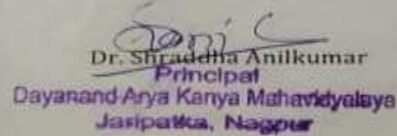 Dr. Shraddha Anilkumar
Principal
Dayanand Arya Kanya Mahavidyalaya
Jaripatka, Nagpur